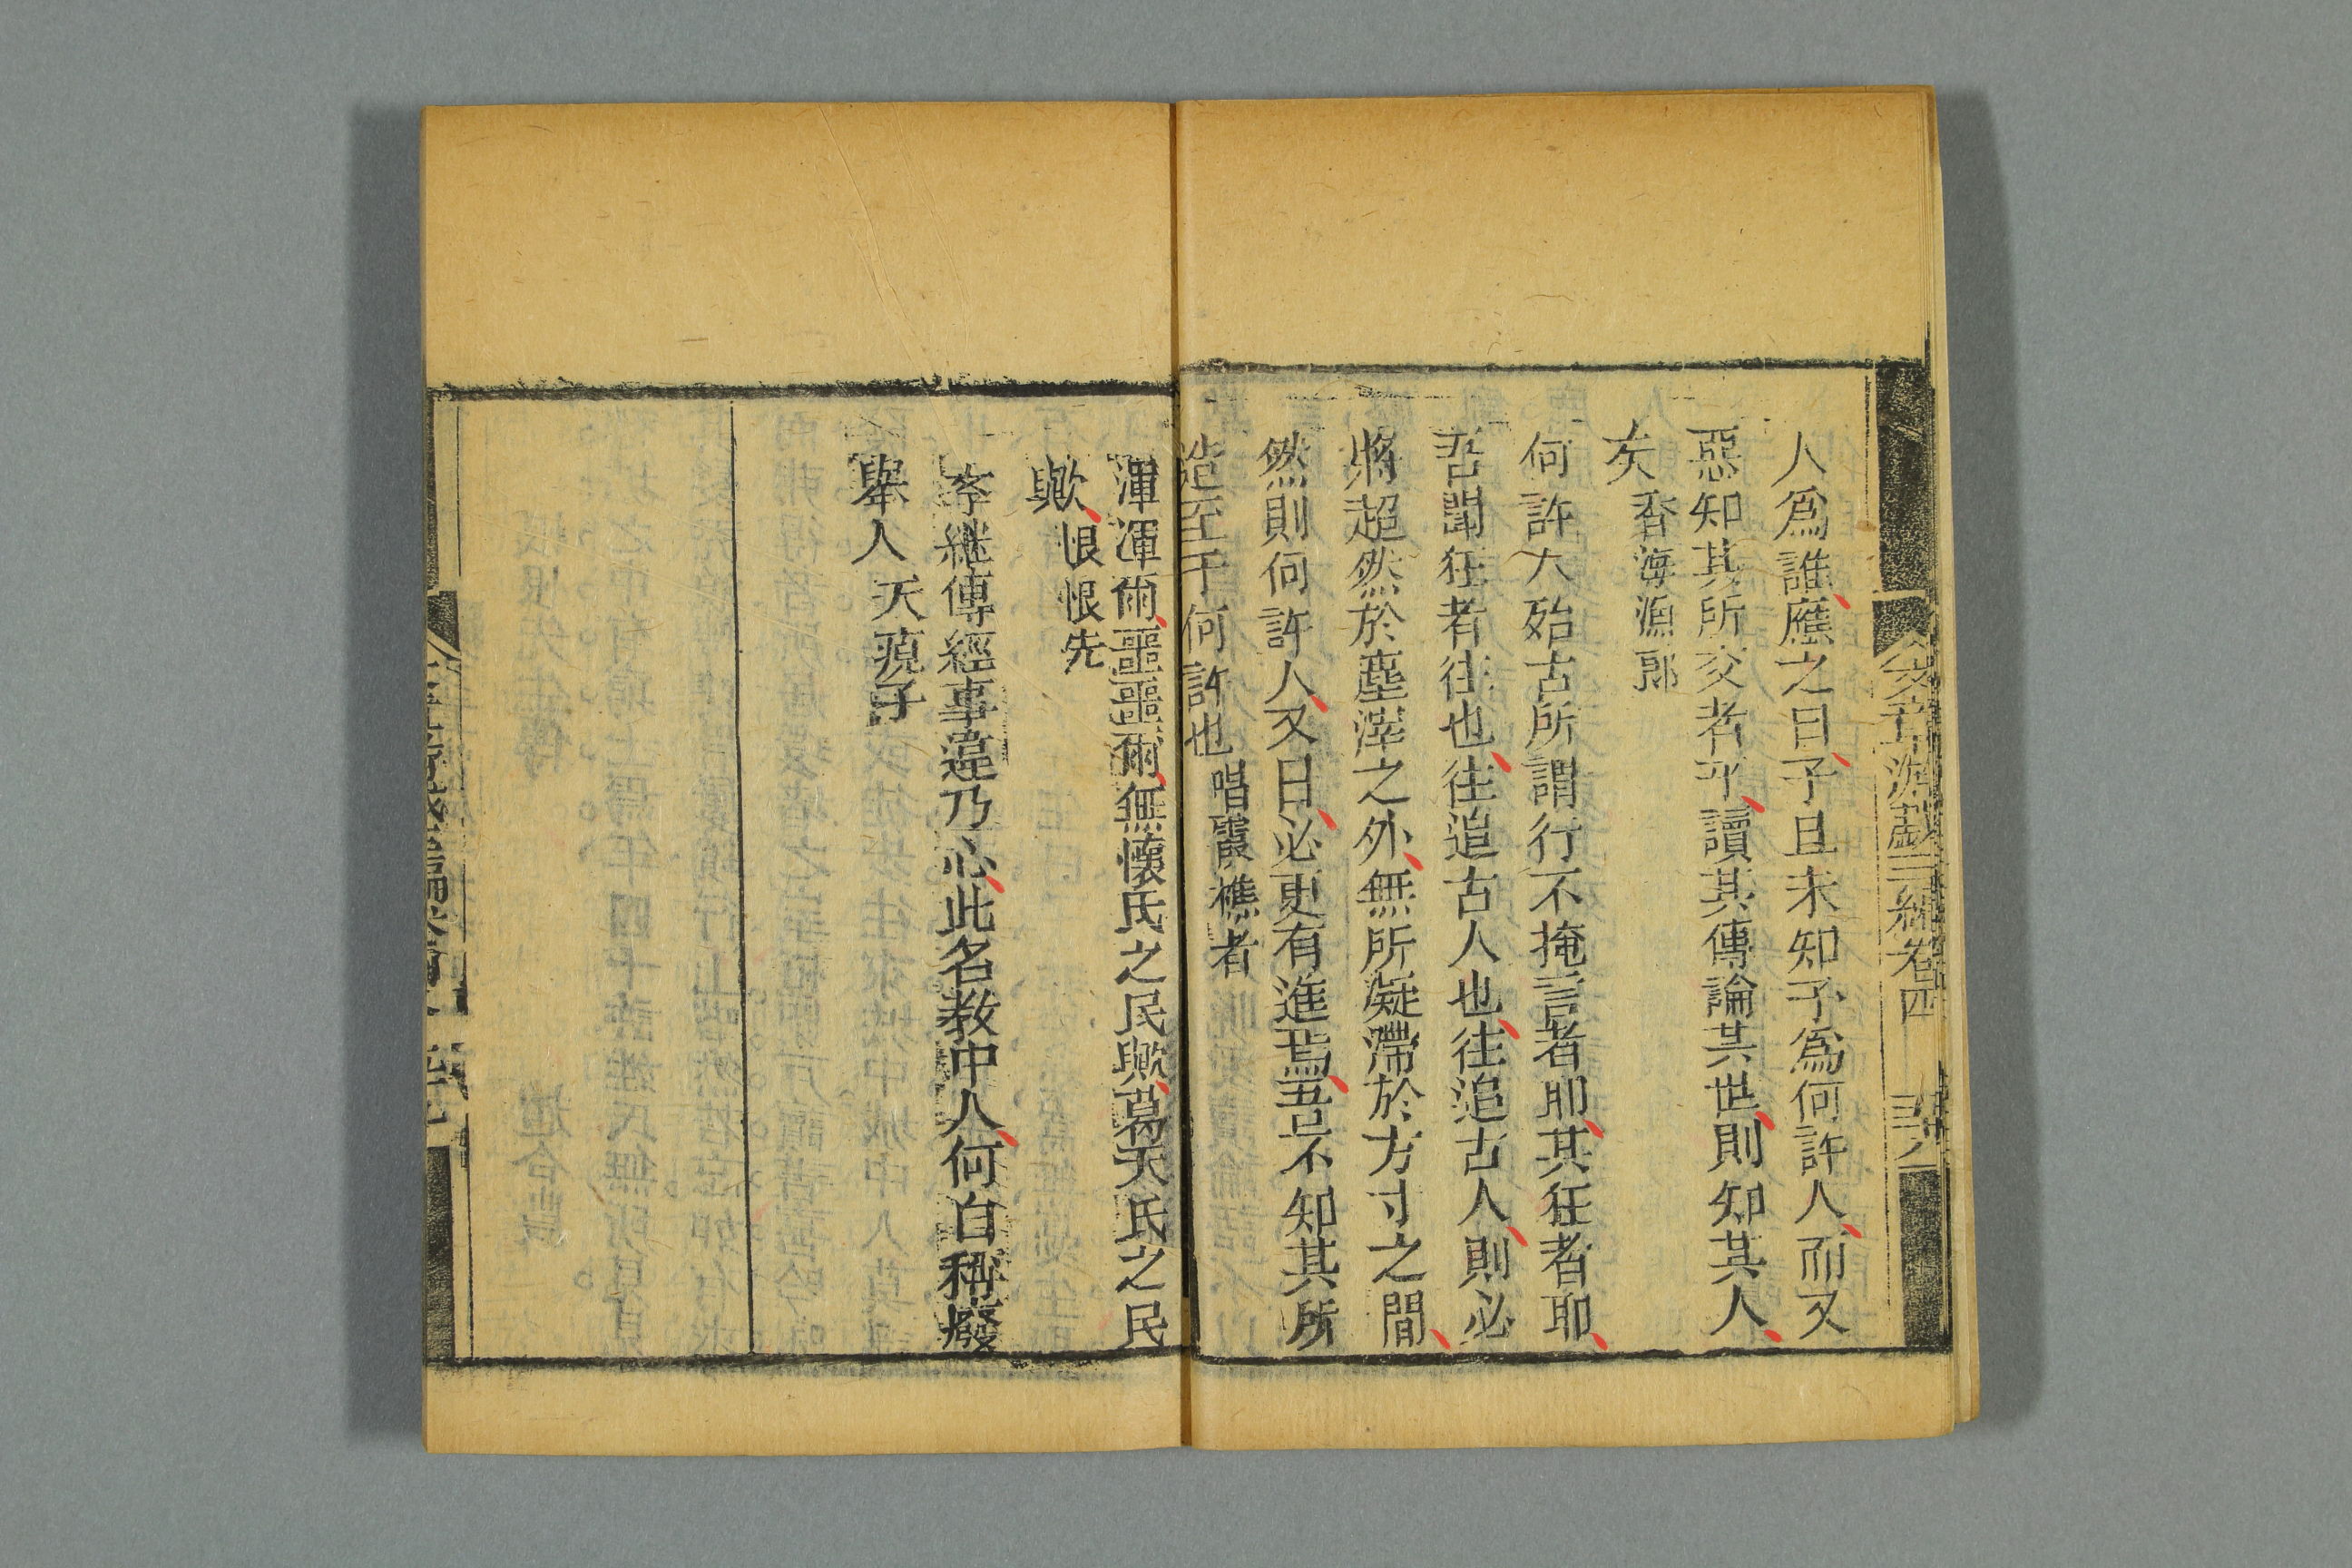 人爲誰應之曰予且未知予爲何許人而又
惡知其所交者乎讀其傳論其世則知其人
矣 香海漁郎
何許人殆古所謂行不掩言者耶其狂者耶
吾聞狂者往也往追古人也往追古人則必
將超然於塵滓之外無所凝滯於方寸之間
然則何許人又曰必更有進焉吾不知其所
造至于何許也 唱霞樵者
渾渾爾噩噩爾無懷氏之民歟葛天氏之民
歟 恨恨先
李継傳經事違乃心此名教中人何自稱癈
舉人 天瘦子
文章游戲三編卷四